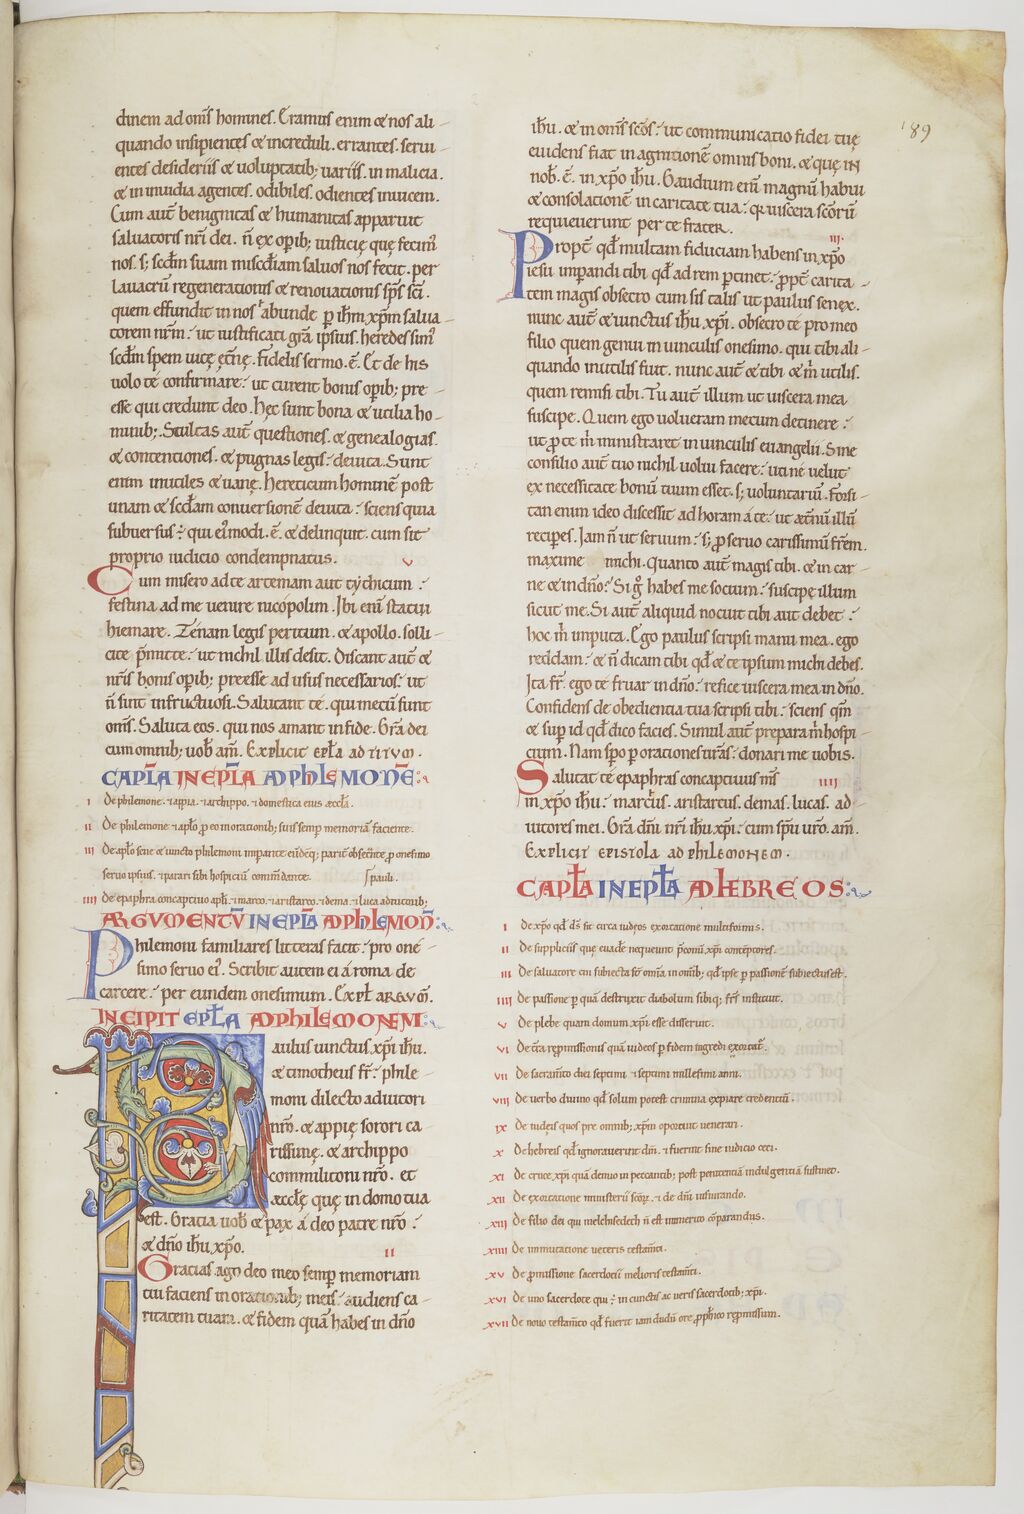 dinem ad om̄s homines. Eramus enim & nos ali-
quando insipientes & increduli. errantes. serui-
entes desideriis & uoluptatib; uariis. in malicia.
& in inuidia agentes. odibiles. odientes inuicem.
Cum aut̄ benignitas & humanitas apparuit
saluatoris nr̄i dei. n̄ ex opib; iusticię quę fecim'
nos. s; scd̄m suam miscd̄iam saluos nos fecit. per
lauacrū regenerationis & renouationis sp̄s sc̄i.
quem effundit in nos abunde p ih̄m xp̄m salua-
torem nr̄m. ut iustificati grā ipsius. heredes sim'
scd̄m spem uitę ęt̄nę. Fidelis sermo. ē. Et de his
uolo te confirmare. ut curent bonis opib; pre-
esse qui credunt deo. Hęc sunt bona & utilia ho-
minib;. Stultas aut̄ questiones. & genealogias.
& contentiones. & pugnas legis. deuita. Sunt
enim inutiles & uanę. Hereticum hominē post
unam & scd̄am conuersionē deuita. sciens quia
subuersus. qui ei'modi. ē. & delinquit. cum sit
proprio iudicio condempnatus. v
Cum misero ad te artemam aut tychicum
festina ad me uenire nicopolim. Ibi eni statui
hiemare. Zenam legis peritum. & apollo. solli-
cite p̄mitte. ut nichil illis desit. Discant aut̄ &
nr̄is bonis opib; preesse ad usus necessarios. ut
n̄ sint infructuosi. Salutant te. qui mecū sunt
om̄s. Saluta eos. qui nos amant in fide. Grā dei
cum omnib; uob̄ am̄. Explicit epl̄a ad titum.
CAPL̄A IN EPL̄A AD PHILEMONĒ
I De philemone. & appia. & archippo. & domestica eius æccl̄a.
II De philemone & apl̄o p eo in orationib; suis semp memoriam faciente.
III De apl̄o sene & uincto philemoni impante eid̄eq; parit̄ obsec̄nte p onesimo
seruo ipsius. & parari sibi hospicium comm̄dante. pauli.
IIII De epaphra concaptiuo apl̄i. & marco. & aristarco. & dema. & luca adiutorib;
ARGVMENTV̄ IN EPL̄A AD PHILEMON̄
Philemoni familiares litteras facit. pro one-
simo seruo ei'. Scribit autem ei a roma de
carcere. per eundem onesimum. Expl̄ argum̄.
INCIPIT EPL̄A AD PHILEMONEM
Paulus uinctus xp̄i ih̄u.
& timotheus fr̄. phile-
moni dilecto adiutori
nr̄o. & appię sorori ca-
rissimę. & archippo
commilitoni nr̄o. et
æccl̄ę quę in domo tua
est. Gratia uob̄ & pax a deo patre nr̄o
& dn̄o ih̄u xp̄o. II
Gratias ago deo meo semp memoriam
tui faciens in orationib; meis. audiens ca-
ritatem tuam. & fidem quā habes in dn̄o
189
ih̄u. & in om̄s sc̄os. ut communicatio fidei tuę
euidens fiat in agnitionē omnis boni. & quę in
nob̄. ē. in xp̄o ih̄u. Gaudium eni magnū habui
& consolationē in caritate tua. quia uiscera sc̄orū
requieuerunt per te frater. III.
Propt̄ qd̄ multam fiduciam habens in xp̄o
iesu impandi tibi qd̄ ad rem ptinet. ppt̄ carita-
tem magis obsecro cum sis talis ut paulus senex.
nunc aut̄ & uinctus ih̄u xp̄i. obsecro te pro meo
filio quem genui in uinculis onesimo. qui tibi ali-
quando inutilis fuit. nunc aut̄ & tibi & m̄ utilis.
quem remisi tibi. Tu aut̄ illum ut uiscera mea
suscipe. Quem ego uolueram mecum detinere
ut p te m̄ ministraret in uinculis euangelii. Sine
consilio aut̄ tuo nichil uolui facere. uti ne uelut
ex necessitate bonū tuum esset. s; uoluntariū. Forsi-
tan enim ideo discessit ad horam a te. ut æt̄nū illū
recipes. Iam n̄ ut seruum. s; p seruo carissimū fr̄em.
maxime michi. Quanto aut̄ magis tibi. & in car-
ne & in dn̄o. Si g° habes me socium. suscipe illum
sicut me. Si aut̄ aliquid nocuit tibi aut debet.
hoc m̄ imputa. Ego paulus scripsi manu mea. ego
reddam. & n̄ dicam tibi qd̄ & te ipsum michi debes.
Ita fr̄. ego te fruar in dn̄o. refice uiscera mea in dn̄o.
Confidens de obedientia tua scripsi tibi. sciens qm̄
& sup id qd̄ dico facies. Simul aut̄ prepara m̄ hospi-
tium. Nam spo p orationes ur̄as. donari me uobis.
Salutat te epaphras concaptiuus m̄s IIII
in xp̄o ih̄u. marcus. aristarcus. demas. lucas. ad-
iutores mei. Grā dn̄i nr̄i ih̄u xp̄i. cum sp̄u uro. am̄.
Explicit epistola ad philemonem.
CAPL̄A IN EPL̄A AD HEBREOS
I De xp̄o qd̄ d̄s sit circa iudeos exortatione multiformis.
II De suppliciis que euadē nequeunt p̄coniū xp̄i contēptores.
III De saluatore cui subiecta st̄ om̄ia in om̄ib; qd̄ ipse p passionē subiectus est.
IIII De passione p quā destruxit diabolum sibiq; frs̄ instituit.
V De plebe quam domum xp̄i esse disseruit.
VI De t̄ra repromissionis quā iudeos p fidem ingredi exortat̄.
VII De sacram̄to diei septimi & septimi millesimi anni.
VIII De uerbo diuino qd̄ solum potest crimina expiare credentiū.
IX De iudeis quos pre omnib; xp̄m oportuit uenerari.
X De hebreis qd̄ ignorauerint dm̄. & fuerint sine iudicio ceci.
XI De cruce xp̄i quā denuo in peccantib; post penitentiā indulgentiā sustineo.
XII De exortatione ministerii scōꝝ. & de dm̄i iusiurando.
XIII De filio dei qui melchisedech n̄ est inmerito cōparandus.
XIIII De immutatione ueteris testam̄ti.
XV De promissione sacerdotii melioris testam̄ti.
XVI De uno sacerdote qui. in cunctis ac ueris sacerdotib; xp̄i.
XVII De nouo testam̄to qd̄ fuerit iam dudū ore p̄ph̄ico repromissum.